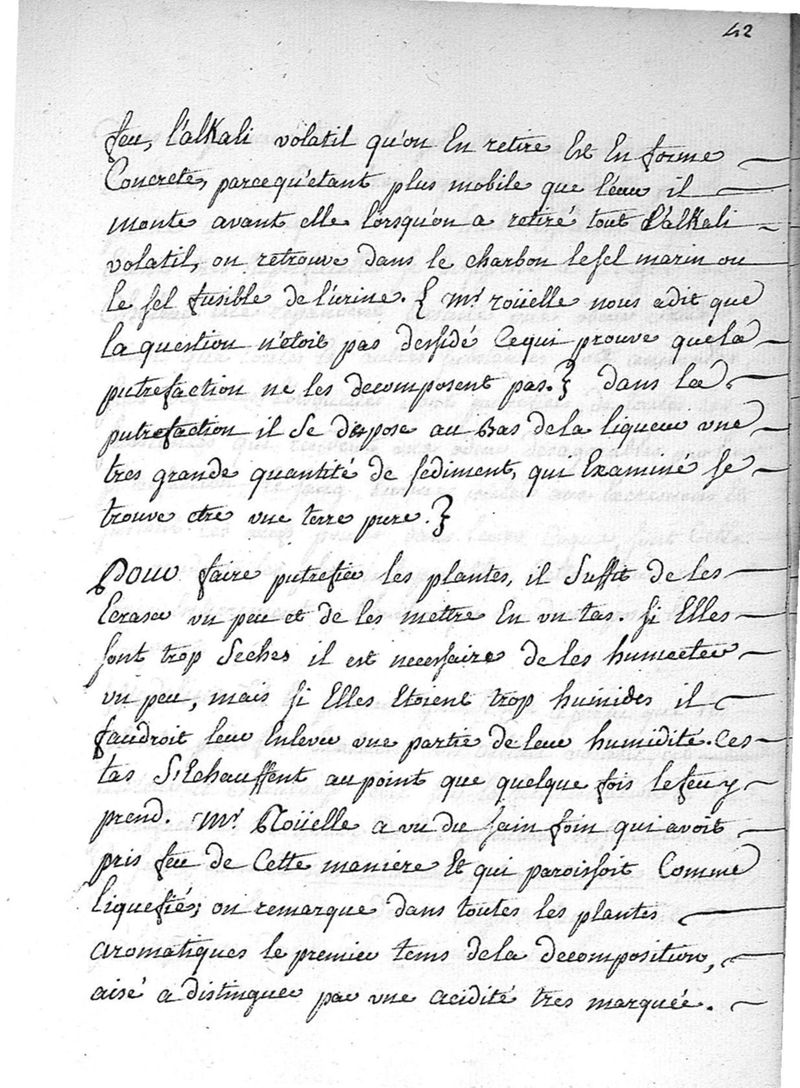 42
feu, l'alKali volatil qu'on En retire Est En forme
Concrete, parcequ'etant plus mobile que l'eau il
monte avant elle lorsqu'on a retiré tout l'alKali
volatil, on retrouve dans le charbon le sel marin ou
le sel fusible de l'urine. { Mr. roüelle nous adit que
la question n'étoit pas dessidé Cequi prouve que la
putrefaction ne les decomposent pas. } dans la
putrefaction il Se depose au Bas dela liqueur une
tres grande quantité de sediment, qui Examiné se
trouve etre une terre pure. }
Pour faire putrefier les plantes, il Suffit de les
Ecraser un peu et de les mettre En un tas. si Elles
sont trop Seches il est necessaire de les humecter
un peu, mais si Elles Etoient trop humides il
faudroit leur Enlever une partie de leur humidité. Ces
tas S'Echauffent au point que quelque fois le feu y
prend. Mr. Roüelle a vu du sain foin qui avoit
pris feu de Cette maniére Et qui paroissoit Comme
liquefié; on remarque dans toutes les plantes
aromatiques le premier tems dela decomposition,
aisé a distinguer par une acidité tres marquée.